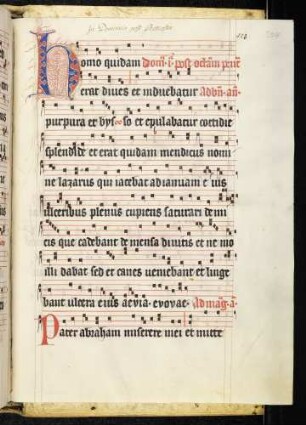 Homo quidam Dom̄. i. post octam̄ pent̄
erat diues et induebatur Adbn̄. an̄.
purpura et bysso et epulabatur cottidie
splendide et erat quidam mendicus nomi
ne lazarus qui iacebat ad ianuam eius
ulceribus plenus cupiens saturari de mi
cis que cadebant de mensa diuitis et ne mo
illi dabat sed et canes ueniebant et linge
bant ulcera eius aeuia. evovae. Ad maḡ. a.
Pater abraham miserere mei et mitte